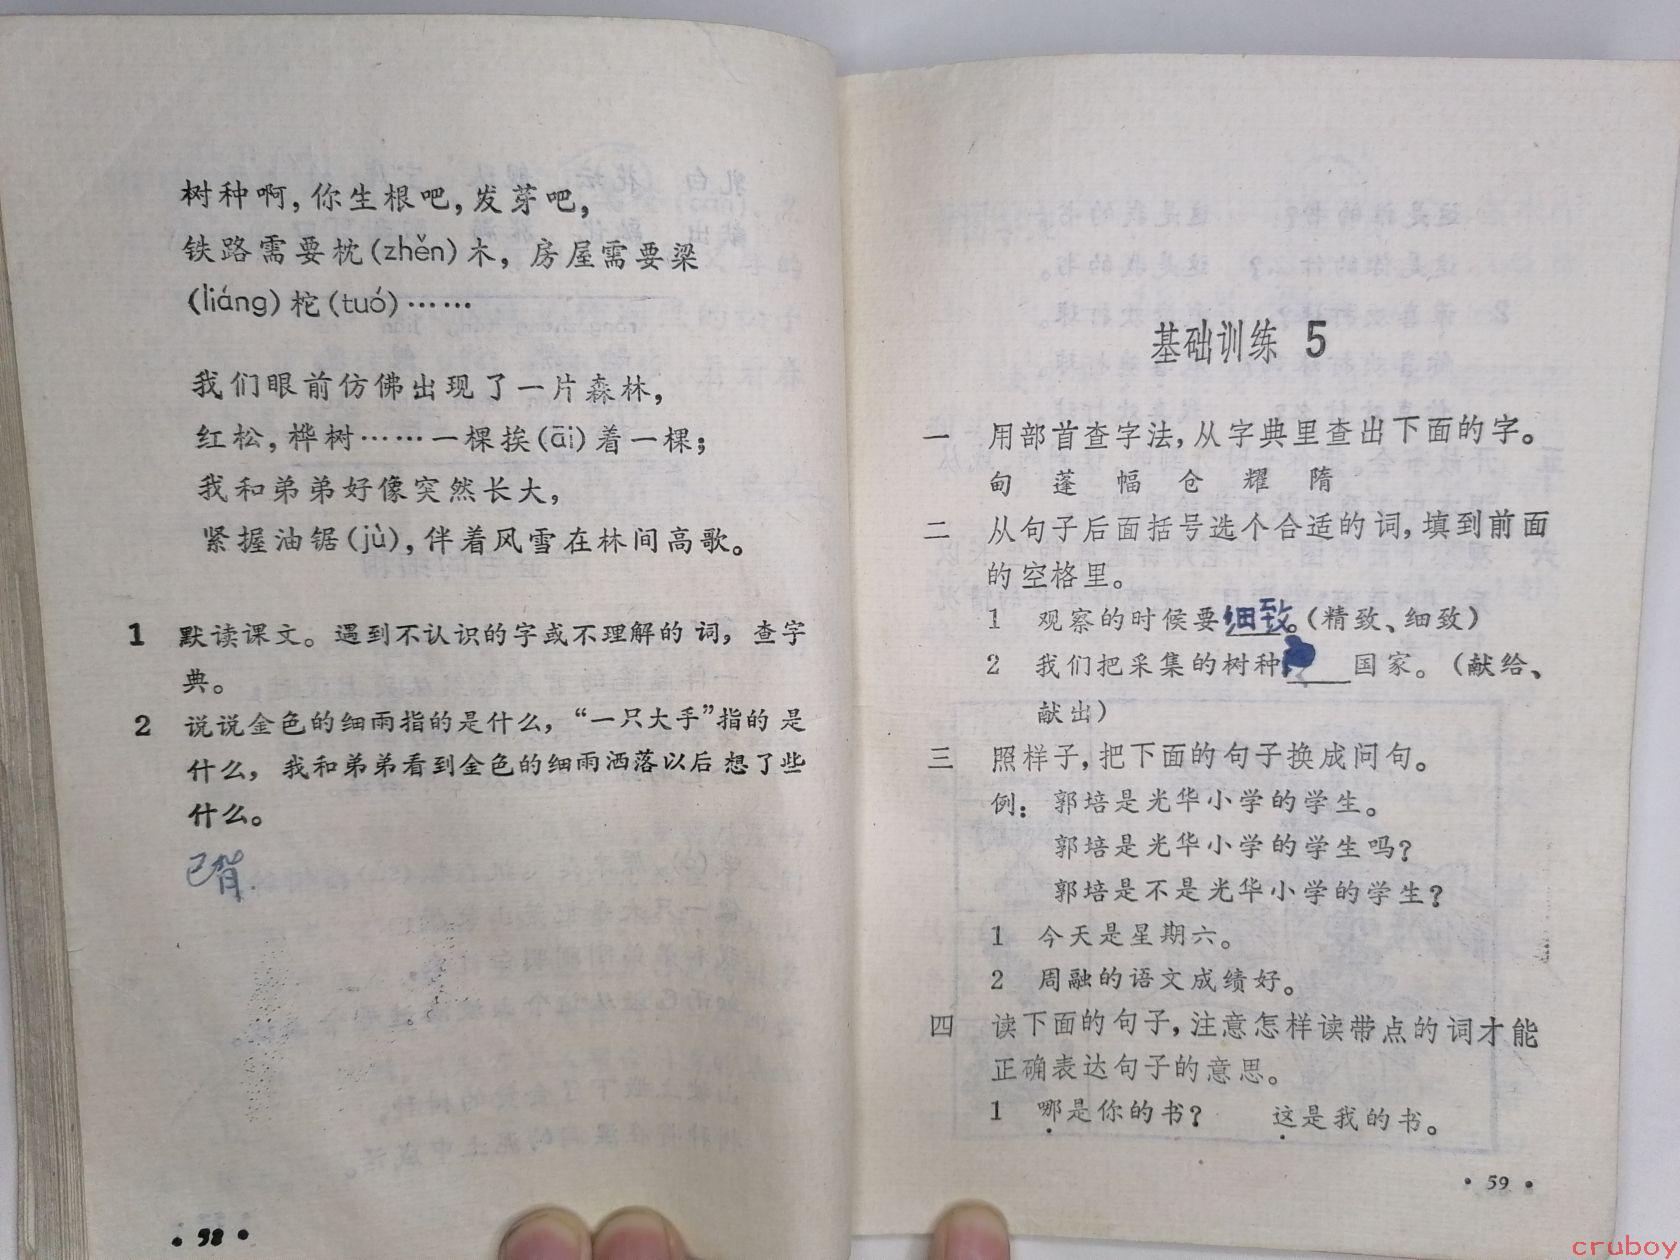 树种啊,你生根吧,发芽吧,
铁路需要枕(zhěn)木, 房屋需要梁
(liáng)柁(tuó)……
我们眼前仿佛出现了一片森林,
红松,桦树……一棵挨(āi)着一棵;
我和弟弟好像突然长大,
紧握油锯(jù),伴着风雪在林间高歌。
1 默读课文。遇到不认识的字或不理解的词, 查字
典。
2 说说金色的细雨指的是什么,“一只大手”指的是
什么, 我和弟弟看到金色的细雨洒落以后想了些
什么。
已背.
基础训练 5
一 用部首查字法,从字典里查出下面的字。
甸 蓬 幅 仓 耀 隋
二 从句子后面括号选个合适的词,填到前面
的空格里。
1 观察的时候要细致。(精致、细致)
2 我们把采集的树种____国家。(献给、
献出)
三 照样子,把下面的句子换成问句。
例: 郭培是光华小学的学生。
郭培是光华小学的学生吗?
郭培是不是光华小学的学生?
1 今天是星期六。
2 周融的语文成绩好。
四 读下面的句子,注意怎样读带点的词才能
正确表达句子的意思。
1 哪是你的书? 这是我的书。
• 59 •
cruboy